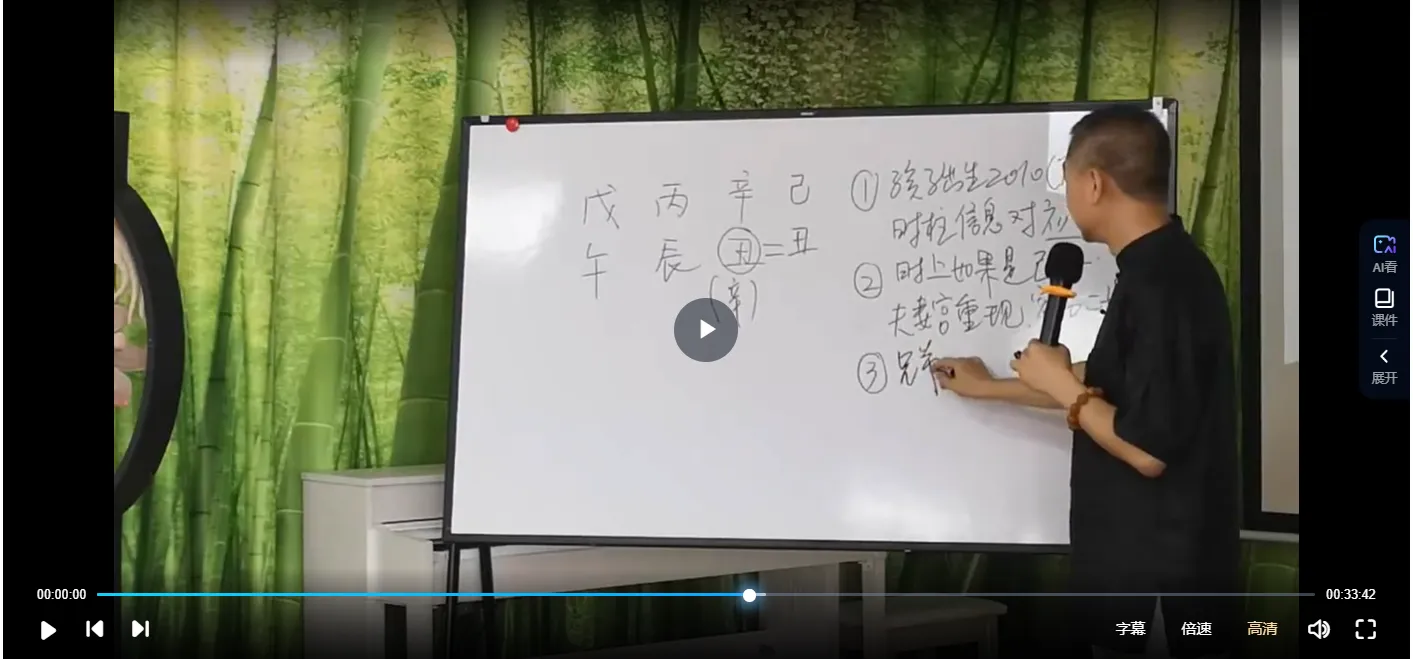 戊 丙 辛 己
午 辰 丑=丑
(辛)
① 孩子出生2010(
时柱信息对应
② 时上如果是己
夫妻宫重现
③ 兄弟
AI看
课件
展开
00:00:00
00:33:42
字幕 倍速 高清